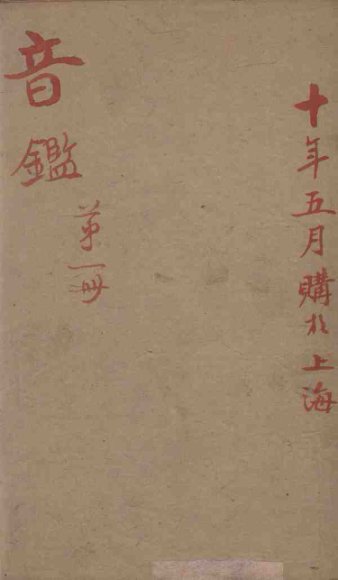 十年五月購於上海
音鑑
第一冊